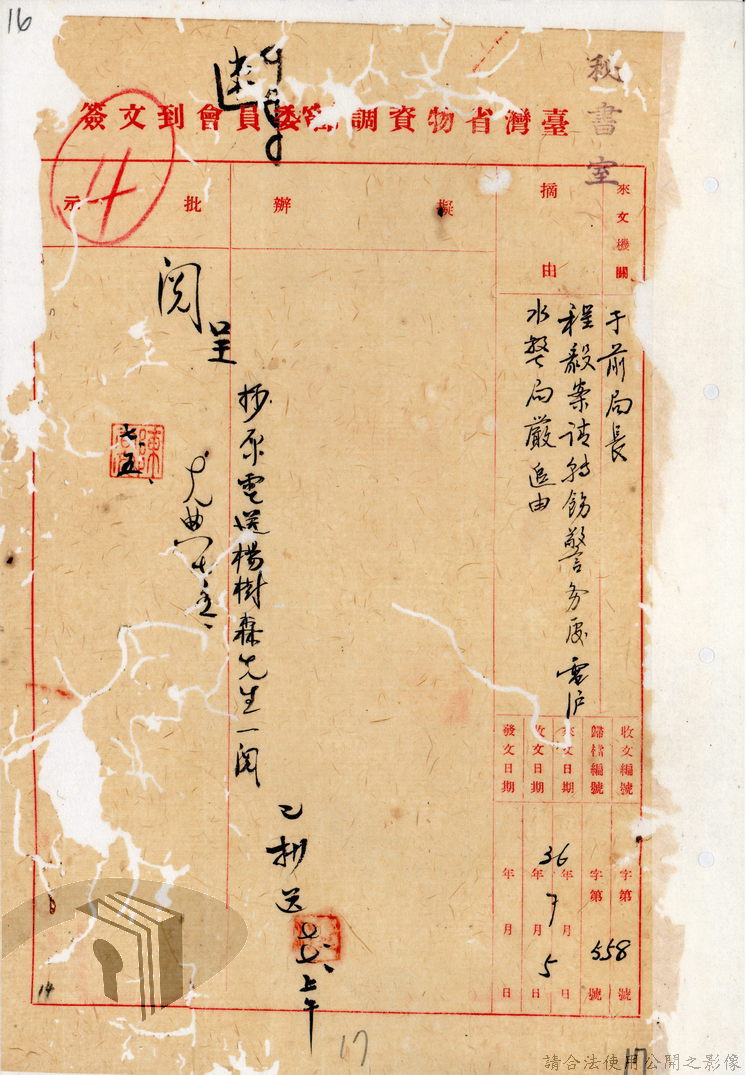 16
秘書室
臺灣省物資調節委員會到文簽
4
來文機關
摘由
擬辦
批示
于前局長
程毅案請轉飭警務處電滬
水警局嚴追由
抄原電送楊樹森先生一閱
已抄送
上午
呈
閱
七五、
收文編號 字第558號
歸檔編號 字第 號
來文日期 年 月 日
收文日期 36年7月5日
發文日期 年 月 日
14
17
17
請合法使用公開之影像